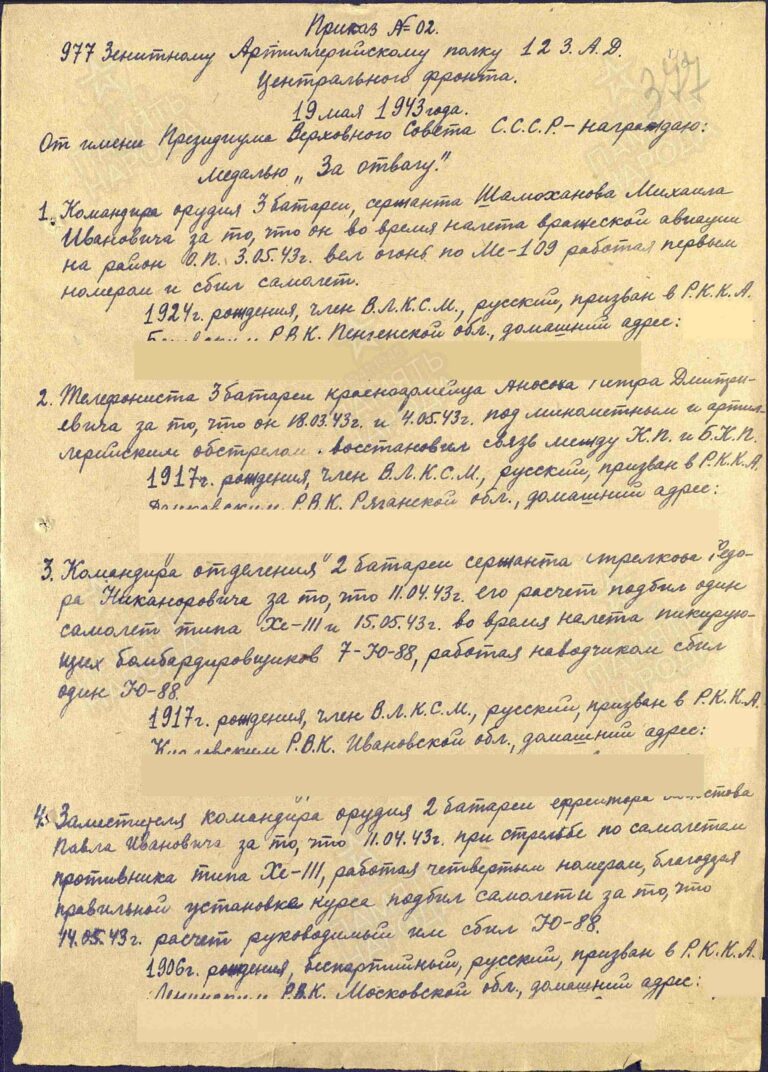 Приказ № 02.
977 Зенитному Артиллерийскому полку 12 З.А.Д.
Центрального фронта.
377
19 мая 1943 года.
От имени Президиума Верховного Совета С.С.С.Р.-награждаю:
Медалью „За отвагу".
1. Командира орудия 3 батареи, сержанта Шамоханова Михаила
Ивановича за то, что он во время налета вражеской авиации
на район О.П. 3.05.43г. вел огонь по Ме-109 работая первым
номером и сбил самолет.
1924г. рождения, член В.Л.К.С.М., русский, призван в Р.К.К.А.
Р.В.К. Пензенской обл., домашний адрес:
2. Телефониста 3 батареи красноармейца Аносова Дмитри-
евича за то, что он 18.03.43г. и 4.05.43г. под минометным и артил-
лерийским обстрелом восстановил связь между К.П. и Б.К.П.
1917г. рождения, член В.Л.К.С.М., русский, призван в Р.К.К.А.
Р.В.К. Рязанской обл., домашний адрес:
3. Командира отделения 2 батареи сержанта Стрелкова Федо-
ра Никаноровича за то, что 11.04.43г. его расчет подбил один
самолет типа Хе-111 и 15.05.43г. во время налета пикирую-
щих бомбардировщиков 7-Ю-88, работая наводчиком сбил
один Ю-88.
1917г. рождения, член В.Л.К.С.М., русский, призван в Р.К.К.А.
Р.В.К. Ивановской обл., домашний адрес:
4. Заместителя командира орудия 2 батареи ефрейтора
Павла Ивановича за то, что 11.04.43г. при стрельбе по самолетам
противника типа Хе-111, работая четвертым номером, благодаря
правильной установке курса подбил самолет и за то, что
14.05.43г. расчет руководимый им сбил Ю-88.
1906г. рождения, беспартийный, русский, призван в Р.К.К.А.
Р.В.К. Московской обл., домашний адрес: